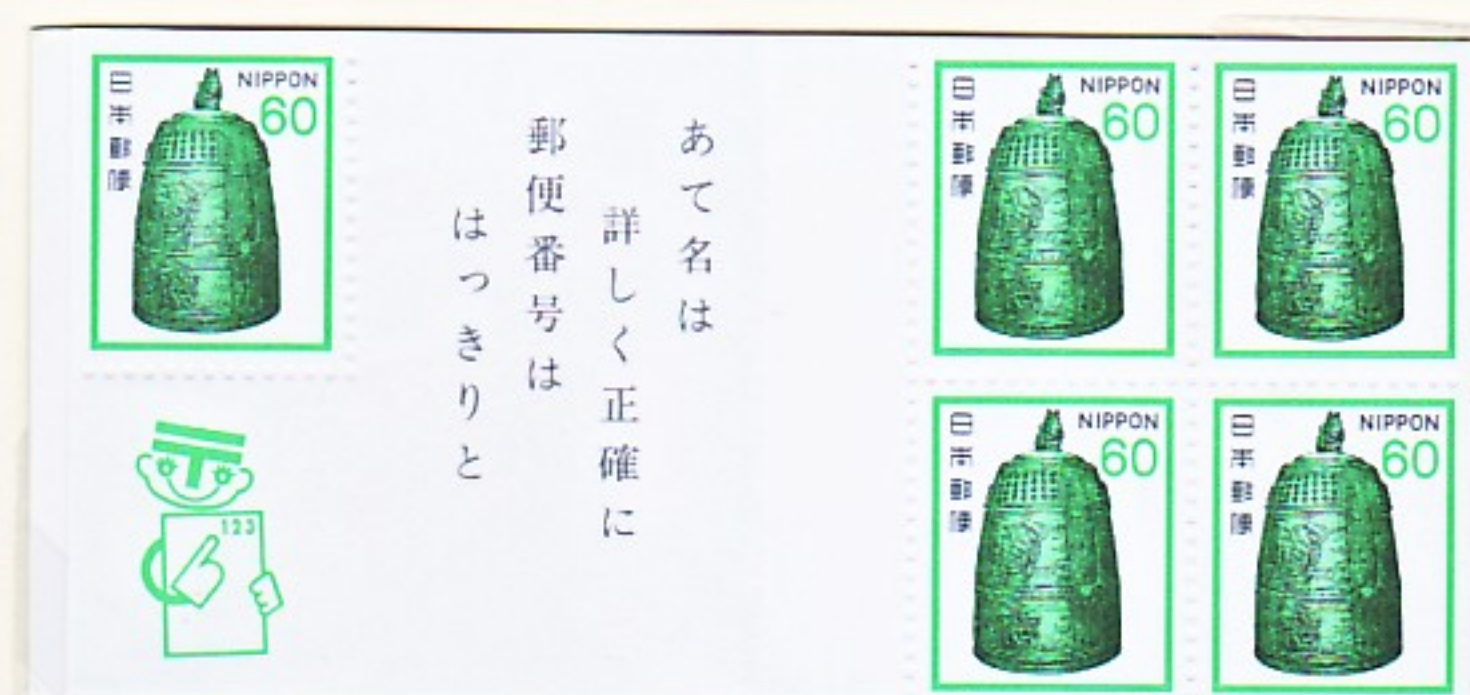 日本郵便
NIPPON
60
あて名は
詳しく正確に
郵便番号は
はっきりと
123
日本郵便
NIPPON
60
日本郵便
NIPPON
60
日本郵便
NIPPON
60
日本郵便
NIPPON
60